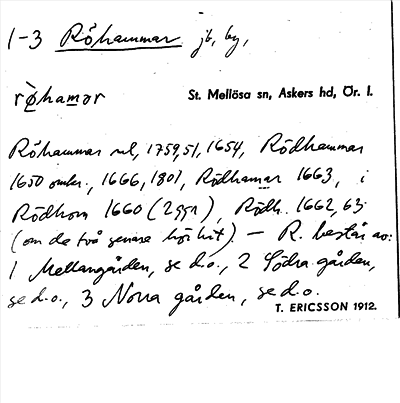 1-3 Röhammar jb, by,
rö̀hamar St. Mellösa sn, Askers hd, Ör. l.
Röhammar ml, 1759, 51, 1654, Rödhammar
1650 omkr., 1666, 1801, Rödhamar 1663, i
Rödhom 1660 (2 ggr), Rödh. 1662, 63
(om de två senare hör hit). — R. består av:
1 Mellangården, se d.o., 2 Södra gården,
se d.o., 3 Norra gården, se d.o.
T. ERICSSON 1912.